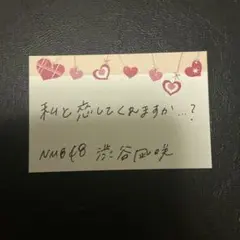 私と恋してくれますか…?
NMB48 渋谷凪咲